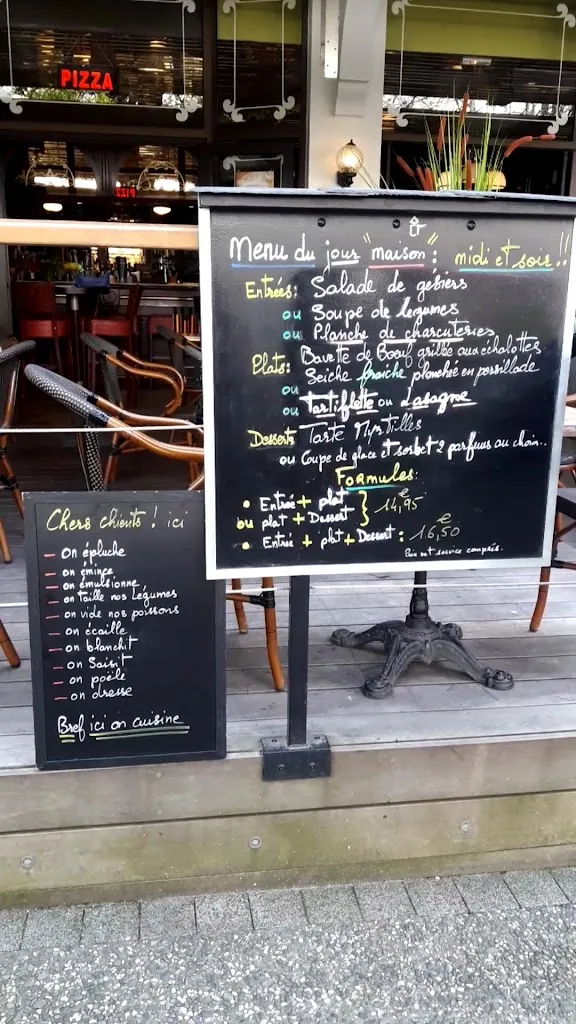 PIZZA
Menu du jour "maison": midi et soir!!
Entrées: Salade de gésiers
ou Soupe de légumes
ou Planche de charcuteries
Plats: Bavette de Bœuf grillée aux échalottes
ou Seiche fraîche planchée en persillade
ou Tartiflette ou Lasagne
Desserts Tarte Myrtilles
ou Coupe de glace et sorbet 2 parfums au choix..
Formules:
• Entrée + plat
ou plat + Dessert } 14,95€
• Entrée + plat + Dessert: 16,50€
Prix net service compris.
Chers clients! ici
- on épluche
- on émince
- on émulsionne
- on taille nos légumes
- on vide nos poissons
- on écaille
- on blanchit
- on Saisit
- on poêle
- on dresse
Bref ici on cuisine